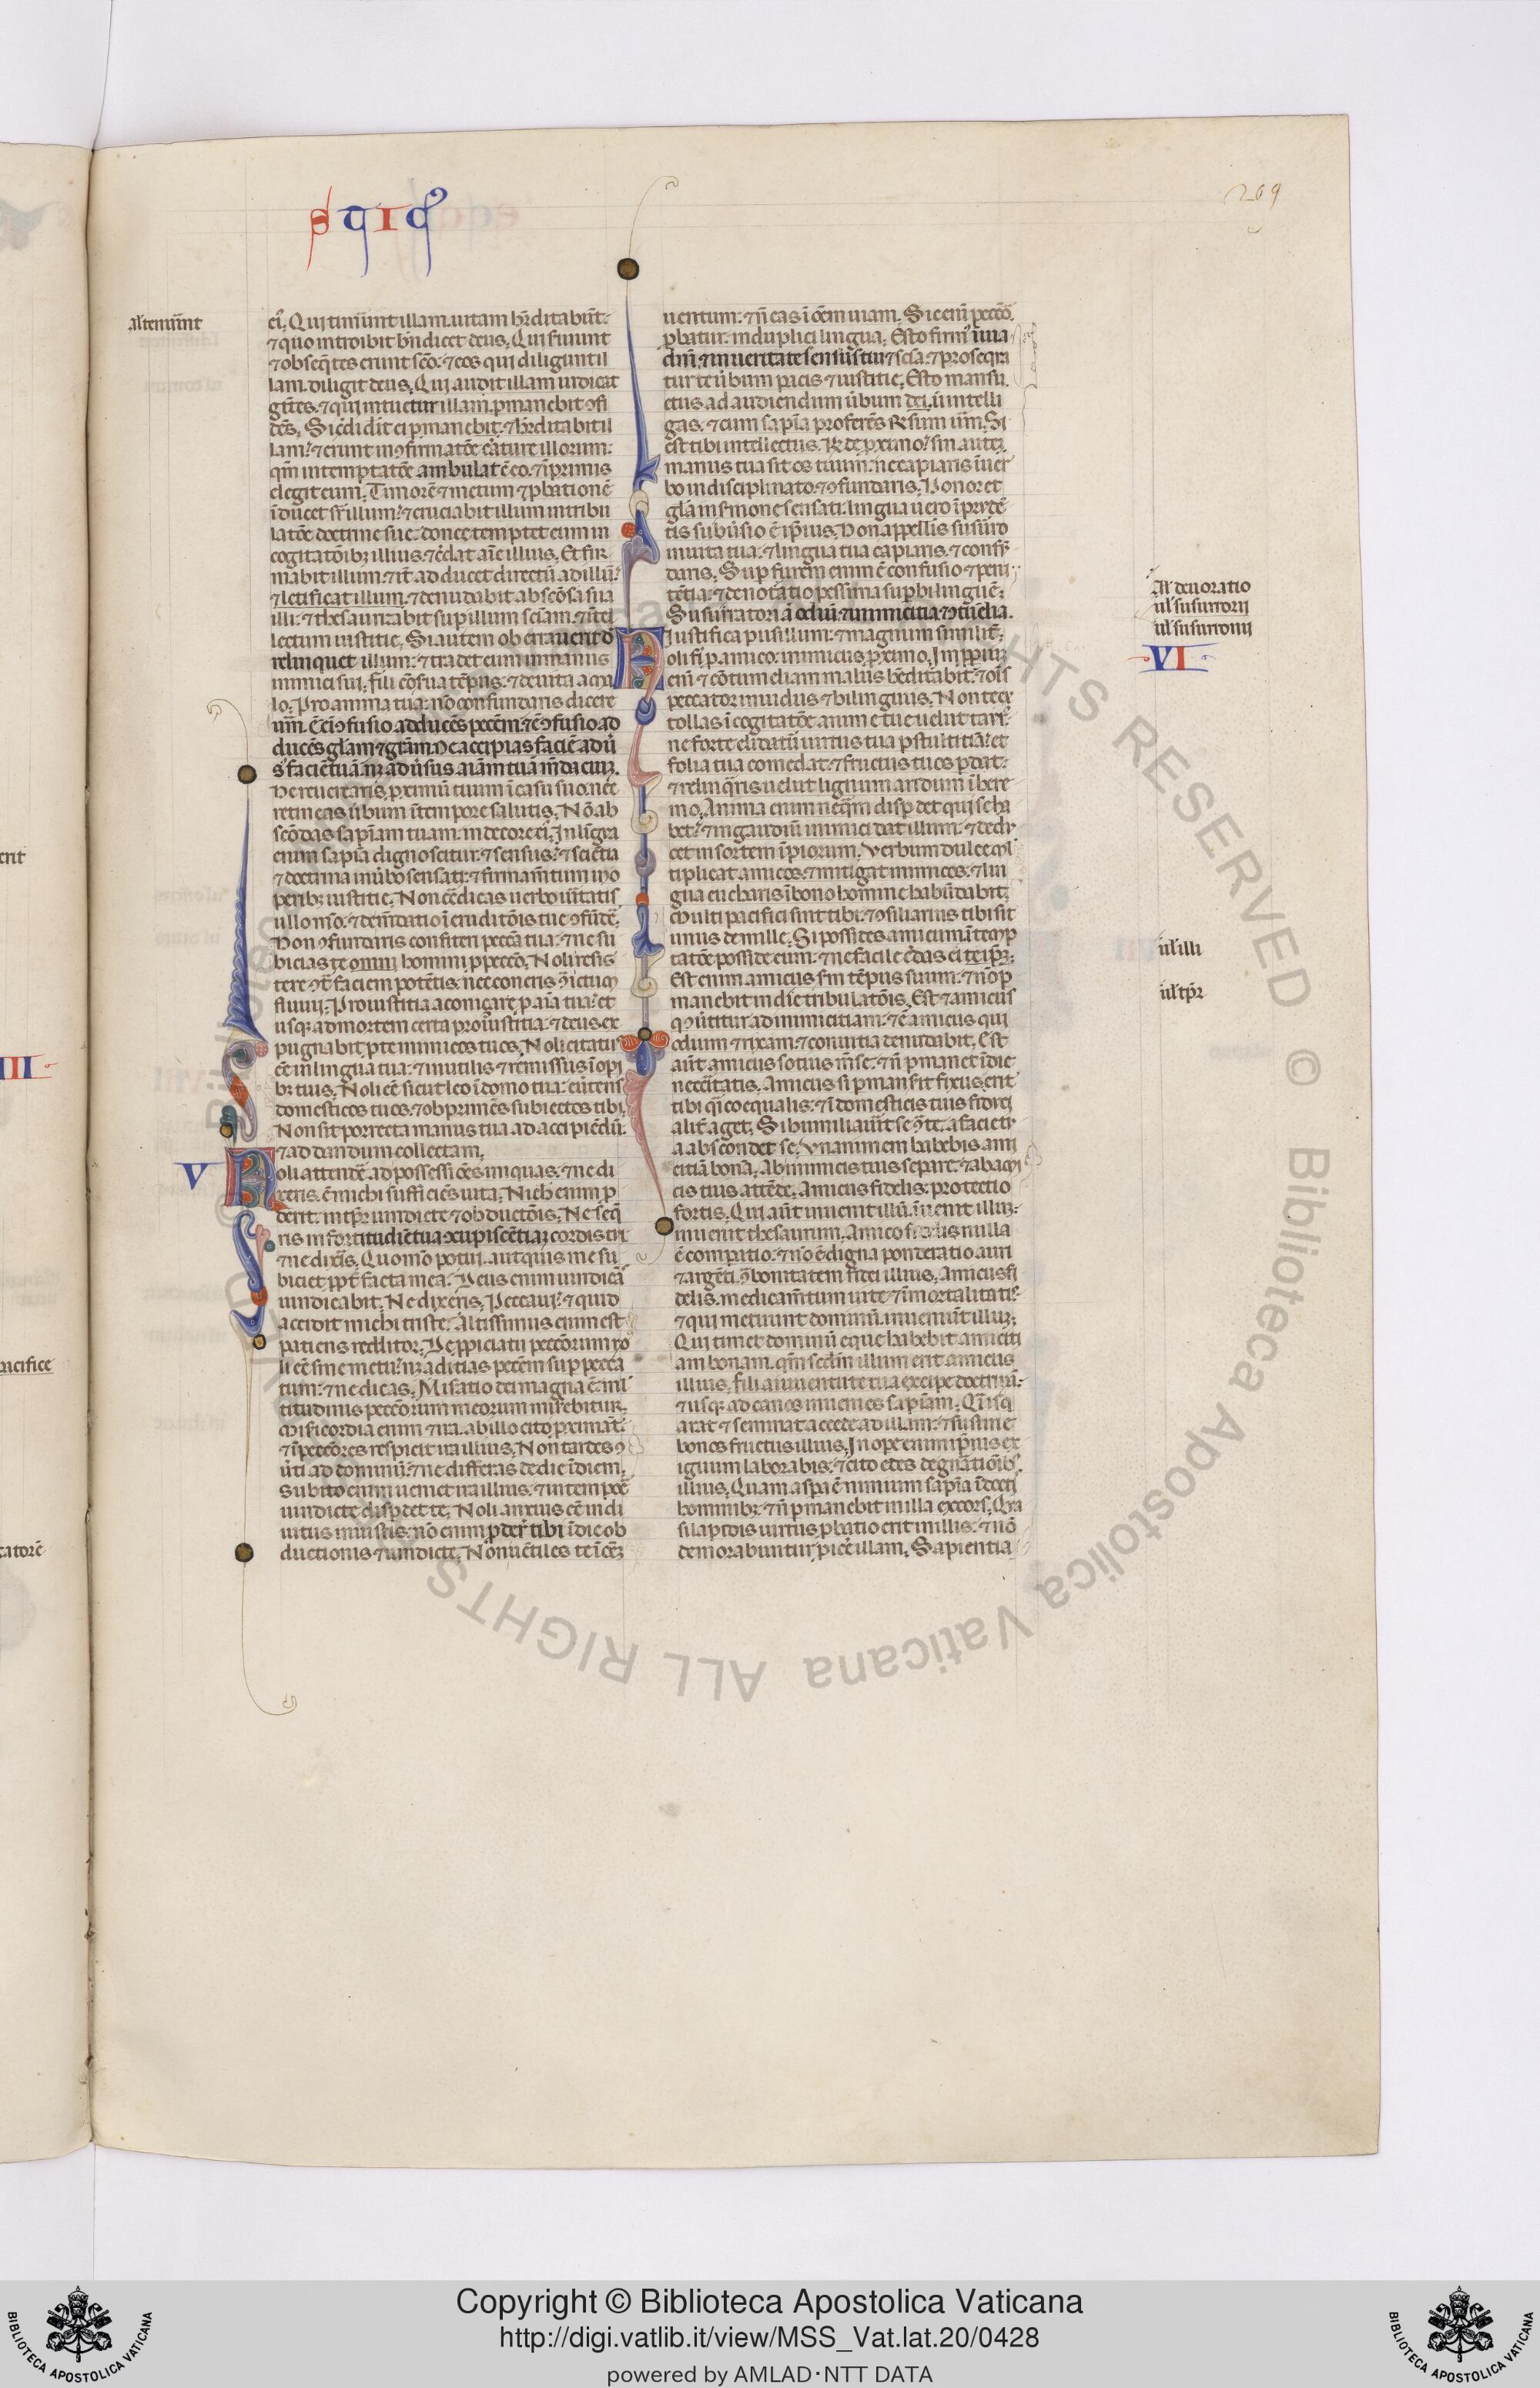 209
ei. Qui tinuerint illam. uitam hẽditabũt.
⁊ quo introibit bñdicet deus. Qui seruiunt
⁊ obseq̃ntes erunt sc̃o. ⁊ eos qui diligunt il
lam. diligit deus. Qui audit illam iudicat
gẽtes. ⁊ qui intuetur illam. ꝑmanebit ↄfi
dẽs. Si c̃didĩt ei ꝑmanebit. ⁊ hẽditabit il
lam. ⁊ erunt in ↄfirmatõe c̃ature illorum.
qm̃ in temptatõe ambulat c̃ eo. ⁊ ĩ primis
elegit eum. Timorẽ ⁊ metum ⁊ ꝓbationẽ
ĩducet sr̃ illum. ⁊ cruciabit illum in tribu
latõe doctrine sue. donec temptet eum in
cogitatõibꝫ illius. ⁊ c̃dat aĩe illius. Et fir
mabit illum. ⁊ itẽ adducet directũ ad illũ.
⁊ letificat illum. ⁊ denudabit absc̃osa sua
illi. ⁊ thesaurizabit sup illum sciam. ⁊ ĩtel
lectum iustitie. Si autem oberrauerit d̃
relinquet illum. ⁊ tradet eum in manus
inimici sui. fili c̃osua tẽpus. ⁊ deuita a ma
lo. Pro anima tua. nõ confundaris dicere
uerũ. Ẽ eĩ ↄfusio adducẽs pccm̃. ⁊ ẽ ↄfusio ad
ducẽs glãm ⁊ grãm. Ne accipias faciẽ aduer
s faciẽ tuã. nꝫ aduersus aĩam tuã mẽdaciuꝫ.
Ne reuearis proximũ tuum ĩ casu suo. nec
retineas uerbum ĩ tempore salutis. Nõ ab
sc̃odas sapiam tuam in decore eĩ. In lĩgua
enim sapĩa dignoscitur. ⁊ sensus. ⁊ sciẽtia
⁊ doctrina in uerbo sensati. ⁊ firmam̃tum in o
peribꝫ iustitie. Non c̃dicas uerbo ueritatis
ullo mõ. ⁊ de mẽdatio ĩ eruditõis tue ↄfũdẽ.
Non ↄfundaris confiteri pecc̃a tua. ⁊ ne su
bicias te omni homini ꝓ pecc̃o. Noli resis
tere ↄ̃t faciem potẽtis. nec coneris ↄ̃ ictum
fluuii. Pro iustitia agoniçare ꝓ aĩa tua. et
usqꝫ ad mortem certa pro iustitia. ⁊ deus ex
pugnabit ꝓ te inimicos tuos. Noli citatus
ẽe in lingua tua. ⁊ inutilis ⁊ remissus ĩ opi
bꝫ tuis. Noli ẽe sicut leo ĩ domo tua. euertens
domesticos tuos. ⁊ obprimẽs subiectos tibi.
Non sit porrecta manus tua ad accipiẽdũ.
⁊ ad dandum collectam.
Noli attendẽ ad possessiões iniquas. ⁊ ne di
xeris. ẽ michi sufficiẽs uita. Nichil enim ꝓ
derit. in tp̃r uindicte ⁊ obductõis. Ne seq̃
ris in fortitudie tua ↄcupiscẽtiaꝫ cordis tui
⁊ ne dixeris. Quomõ potui. aut quis me su
biciet ppt̃ facta mea. Deus enim uindicãs
uindicabit. Ne dixeris. Peccaui. ⁊ quid
accidit michi triste. Altissimus enim est
patiens redditor. De ꝓpiciatu pecc̃orum no
li ẽe sine metu. nꝫ adicias pecc̃m sup pecca
tum. ⁊ ne dicas. Misatio dei magna ẽ. mul
titudinis pecc̃orum meorum miserebitur.
Misericordia enim ⁊ ira. ab illo cito ꝓximãt.
⁊ ĩ pecc̃ores respicit ira illius. Non tardes ↄ
uerti ad dominũ. ⁊ ne differas de die ĩ diem.
Subito enim ueniet ira illius. ⁊ in tempore
uindicte disꝑdet te. Noli anxius ẽe in di
uitiis iniustis. nõ enim ꝓderunt tibi ĩ die ob
ductionis ⁊ uindicte. Non uẽtiles te ĩ õeꝫ
uentum. ⁊ ñ eas ĩ õem uiam. Sic enĩ pecc̃o
ꝓbatur. in duplici lingua. Esto firm̃ ĩ uia
dñi. ⁊ in ueritate sensus tui ⁊ sciã. ⁊ ꝓseqa
tur te uerbum pacis ⁊ iustitie. Esto mansu
etus ad audiendum uerbum dei. ut intelli
gas. ⁊ cum sapiã proferẽs r̃sum uerum. Si
est tibi intellectus. r̃de ꝓximo. sin autẽ.
manus tua sit os tuum. ne capiaris ĩ uer
bo indisciplinato. ⁊ ↄfundaris. Honor et
glã in smone sensati. lingua uero ĩprudẽ
tis subuersio ẽ ipĩus. Non appellis susurro
in uita tua. ⁊ lingua tua capiaris. ⁊ confũ
daris. Sup furem enim ẽ confusio ⁊ peni
tẽtia. ⁊ denotatio pessima sup bilinguẽ.
Susurratori ã odiũ. ⁊ inimicitia ⁊ ↄtumelia.
Iustifica pusillum. ⁊ magnum similit̃.
Noli fi ꝓ amico. inimicus ꝓximo. Inpꝓiuꝫ
enĩ ⁊ cõtumeliam malus hẽditabit. ⁊ oĩs
peccator inuidus ⁊ bilinguis. Non te ex
tollas ĩ cogitatõe anime tue uelut taur.
ne forte elidatur uirtus tua ꝑ stultitiã. et
folia tua comedat. ⁊ fructus tuos ꝑdat.
⁊ relinq̃ris uelut lignum aridum ĩ here
mo. Anima enim neq̃m disꝑdet qui se ha
bet. ⁊ in gaudiũ inimici dat illum. ⁊ dedu
cet in sortem ĩpiorum. Verbum dulce ml̃
tiplicat amicos. ⁊ mitigat inimicos. ⁊ lin
gua eucharis ĩ bono homine habũdabit.
Multi pacifici sint tibi. ⁊ ↄsiliarius tibi sit
unus de mille. Si possides amicum ĩ temp
tatõe posside eum. ⁊ ne facile c̃das ei teipꝫ.
Est enim amicus sm̃ tẽpus suum. ⁊ ñ ꝑ
manebit in die tribulatõis. Est ⁊ amicus
q̃ uertitur ad inimicitiam. ⁊ ẽ amicus qui
odium ⁊ rixam. ⁊ conuitia denudabit. Est
aũt amicus sotius mẽse. ⁊ ñ ꝑmanet ĩ die
necc̃itatis. Amicus si ꝑmanserit fixus. erit
tibi q̃i coequalis. ⁊ ĩ domesticis tuis fidũci
alit̃ aget. Si humiliauerit se ↄ̃ te. ⁊ a facie tu
a absconderit se. Vnanimem habebis ami
citiã bonã. Ab inimicis tuis separe. ⁊ ab ami
cis tuis attẽde. Amicus fidelis. protectio
fortis. Qui aũt inuenit illũ. ĩuenit illuꝫ.
inuenit thesaurum. Amico fidelis nulla
ẽ compatio. ⁊ nõ ẽ digna ponderatio auri
⁊ argẽti. ↄ̃ bonitatem fidei illius. Amicus fi
delis. medicam̃tum uite ⁊ ĩmortalitatis.
⁊ qui metuunt dominũ. inuenient illuꝫ.
Qui timet dominũ eque habebit amiciti
am bonam. qm̃ scdm illum erit amicus
illius. fili a iuuentute tua excipe doctrinã.
⁊ usqꝫ ad canos inuenies sapĩam. Quasi q̃
arat ⁊ seminat accede ad illam. ⁊ sustine
bonos fructus illius. In oꝑe enim ipsius ex
iguum laborabis. ⁊ cito edes de gñatiõibꝫ
illius. Quam aspa ẽ nimium sapĩa ĩdoctis
hominibꝫ. ⁊ ñ ꝑmanebit in illa excors. Qua
si lapidis uirtus ꝓbatio erit in illis. ⁊ nõ
demorabuntur ꝓicẽ illam. Sapientia
al' temũnt
V
Al' deuoratio
ul' susurrorii
ul' susurronii
VI
ul' illi
ul' tp̃r
III
Copyright © Biblioteca Apostolica Vaticana
http://digi.vatlib.it/view/MSS_Vat.lat.20/0428
powered by AMLAD·NTT DATA
BIBLIOTECA APOSTOLICA VATICANA
BIBLIOTECA APOSTOLICA VATICANA
© Biblioteca Apostolica Vaticana ALL RIGHTS RESERVED